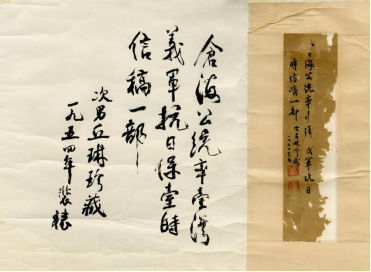 倉海公統率臺灣
義軍抗日保臺時
信稿一部
次男丘琳珍藏
一九五四年裝裱
海公統率
義軍抗日
時信稿一部